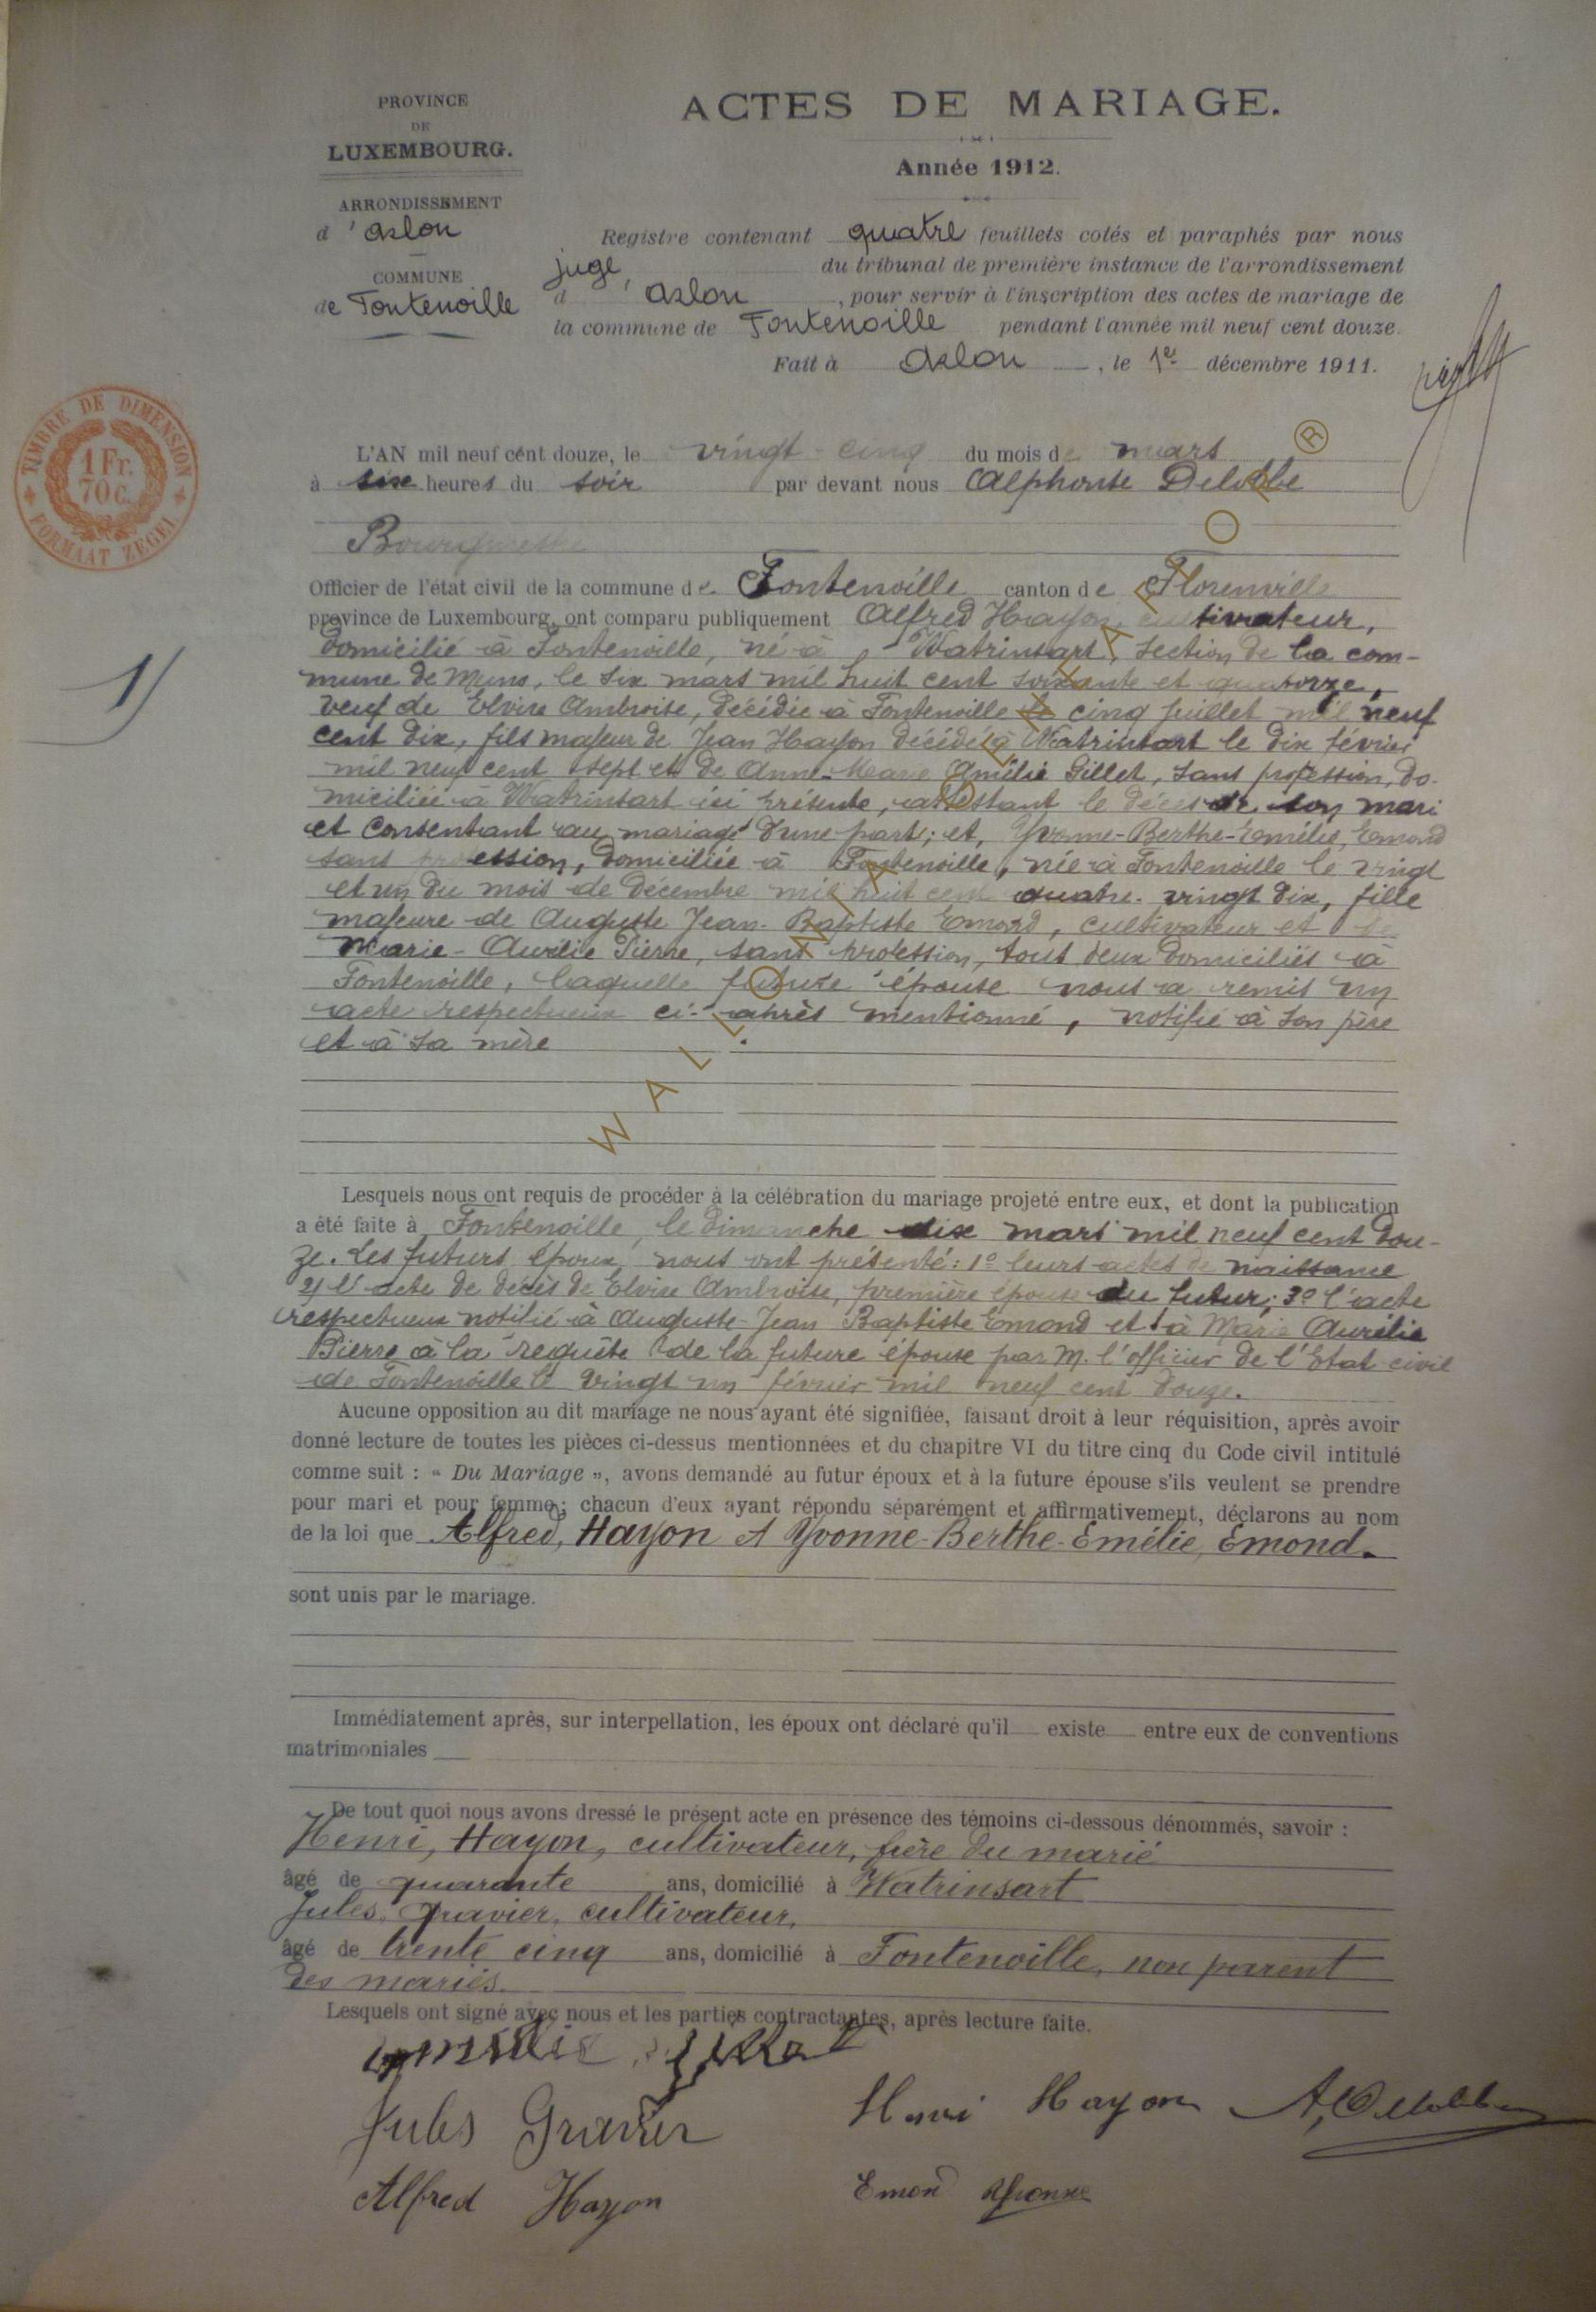 PROVINCE
DE
LUXEMBOURG.
ARRONDISSEMENT
d'Arlon
COMMUNE
de Fontenoille
ACTES DE MARIAGE.
Année 1912.
Registre contenant quatre feuillets cotés et paraphés par nous
juge du tribunal de première instance de l'arrondissement
d'Arlon, pour servir à l'inscription des actes de mariage de
la commune de Fontenoille pendant l'année mil neuf cent douze.
Fait à Arlon, le 1er décembre 1911.
TIMBRE DE DIMENSION
1 Fr.
70 c.
FORMAAT ZEGEL
1)
L'AN mil neuf cent douze, le vingt-cinq du mois de mars
à six heures du soir par devant nous Alphonse Delobbe
Bourgmestre
Officier de l'état civil de la commune de Fontenoille canton de Florenville
province de Luxembourg, ont comparu publiquement Alfred Hayon, cultivateur,
domicilié à Fontenoille, né à Watrinsart, section de la com-
mune de Muno, le six mars mil huit cent soixante et quatorze,
veuf de Elvire Ambroise, décédée à Fontenoille le cinq juillet mil neuf
cent dix, fils majeur de Jean Hayon décédé à Watrinsart le dix février
mil neuf cent sept et de Anne-Marie Amélie Gillet, sans profession, do-
miciliée à Watrinsart ici présente, attestant le décès de son mari
et consentant au mariage d'une part; et, Yvonne-Berthe-Emélie, Emond
sans profession, domiciliée à Fontenoille, née à Fontenoille le vingt
et un du mois de décembre mil huit cent quatre-vingt dix, fille
majeure de Auguste Jean-Baptiste Emond, cultivateur et de
Marie-Aurélie Pierre, sans profession, tous deux domiciliés à
Fontenoille, laquelle future épouse nous a remis un
acte respectueux ci-après mentionné, notifié à son père
et à sa mère.
Lesquels nous ont requis de procéder à la célébration du mariage projeté entre eux, et dont la publication
a été faite à Fontenoille, le dimanche dix mars mil neuf cent dou-
ze. Les futurs époux nous ont présenté: 1º leurs actes de naissance
2) l'acte de décès de Elvire Ambroise, première épouse du futur; 3º l'acte
respectueux notifié à Auguste-Jean Baptiste Emond et à Marie Aurélie
Pierre à la requête de la future épouse par M. l'officier de l'Etat civil
de Fontenoille le vingt un février mil neuf cent douze.
Aucune opposition au dit mariage ne nous ayant été signifiée, faisant droit à leur réquisition, après avoir
donné lecture de toutes les pièces ci-dessus mentionnées et du chapitre VI du titre cinq du Code civil intitulé
comme suit : « Du Mariage », avons demandé au futur époux et à la future épouse s'ils veulent se prendre
pour mari et pour femme; chacun d'eux ayant répondu séparément et affirmativement, déclarons au nom
de la loi que Alfred, Hayon et Yvonne-Berthe-Emélie, Emond.
sont unis par le mariage.
Immédiatement après, sur interpellation, les époux ont déclaré qu'il existe entre eux de conventions
matrimoniales
De tout quoi nous avons dressé le présent acte en présence des témoins ci-dessous dénommés, savoir :
Henri, Hayon, cultivateur, frère du marié
âgé de quarante ans, domicilié à Watrinsart
Jules, Gravier, cultivateur,
âgé de trente cinq ans, domicilié à Fontenoille, non parent
des mariés.
Lesquels ont signé avec nous et les parties contractantes, après lecture faite.
Amélie Gillet
Jules Gravier Henri Hayon A. Delobbe
Alfred Hayon Emond Yvonne